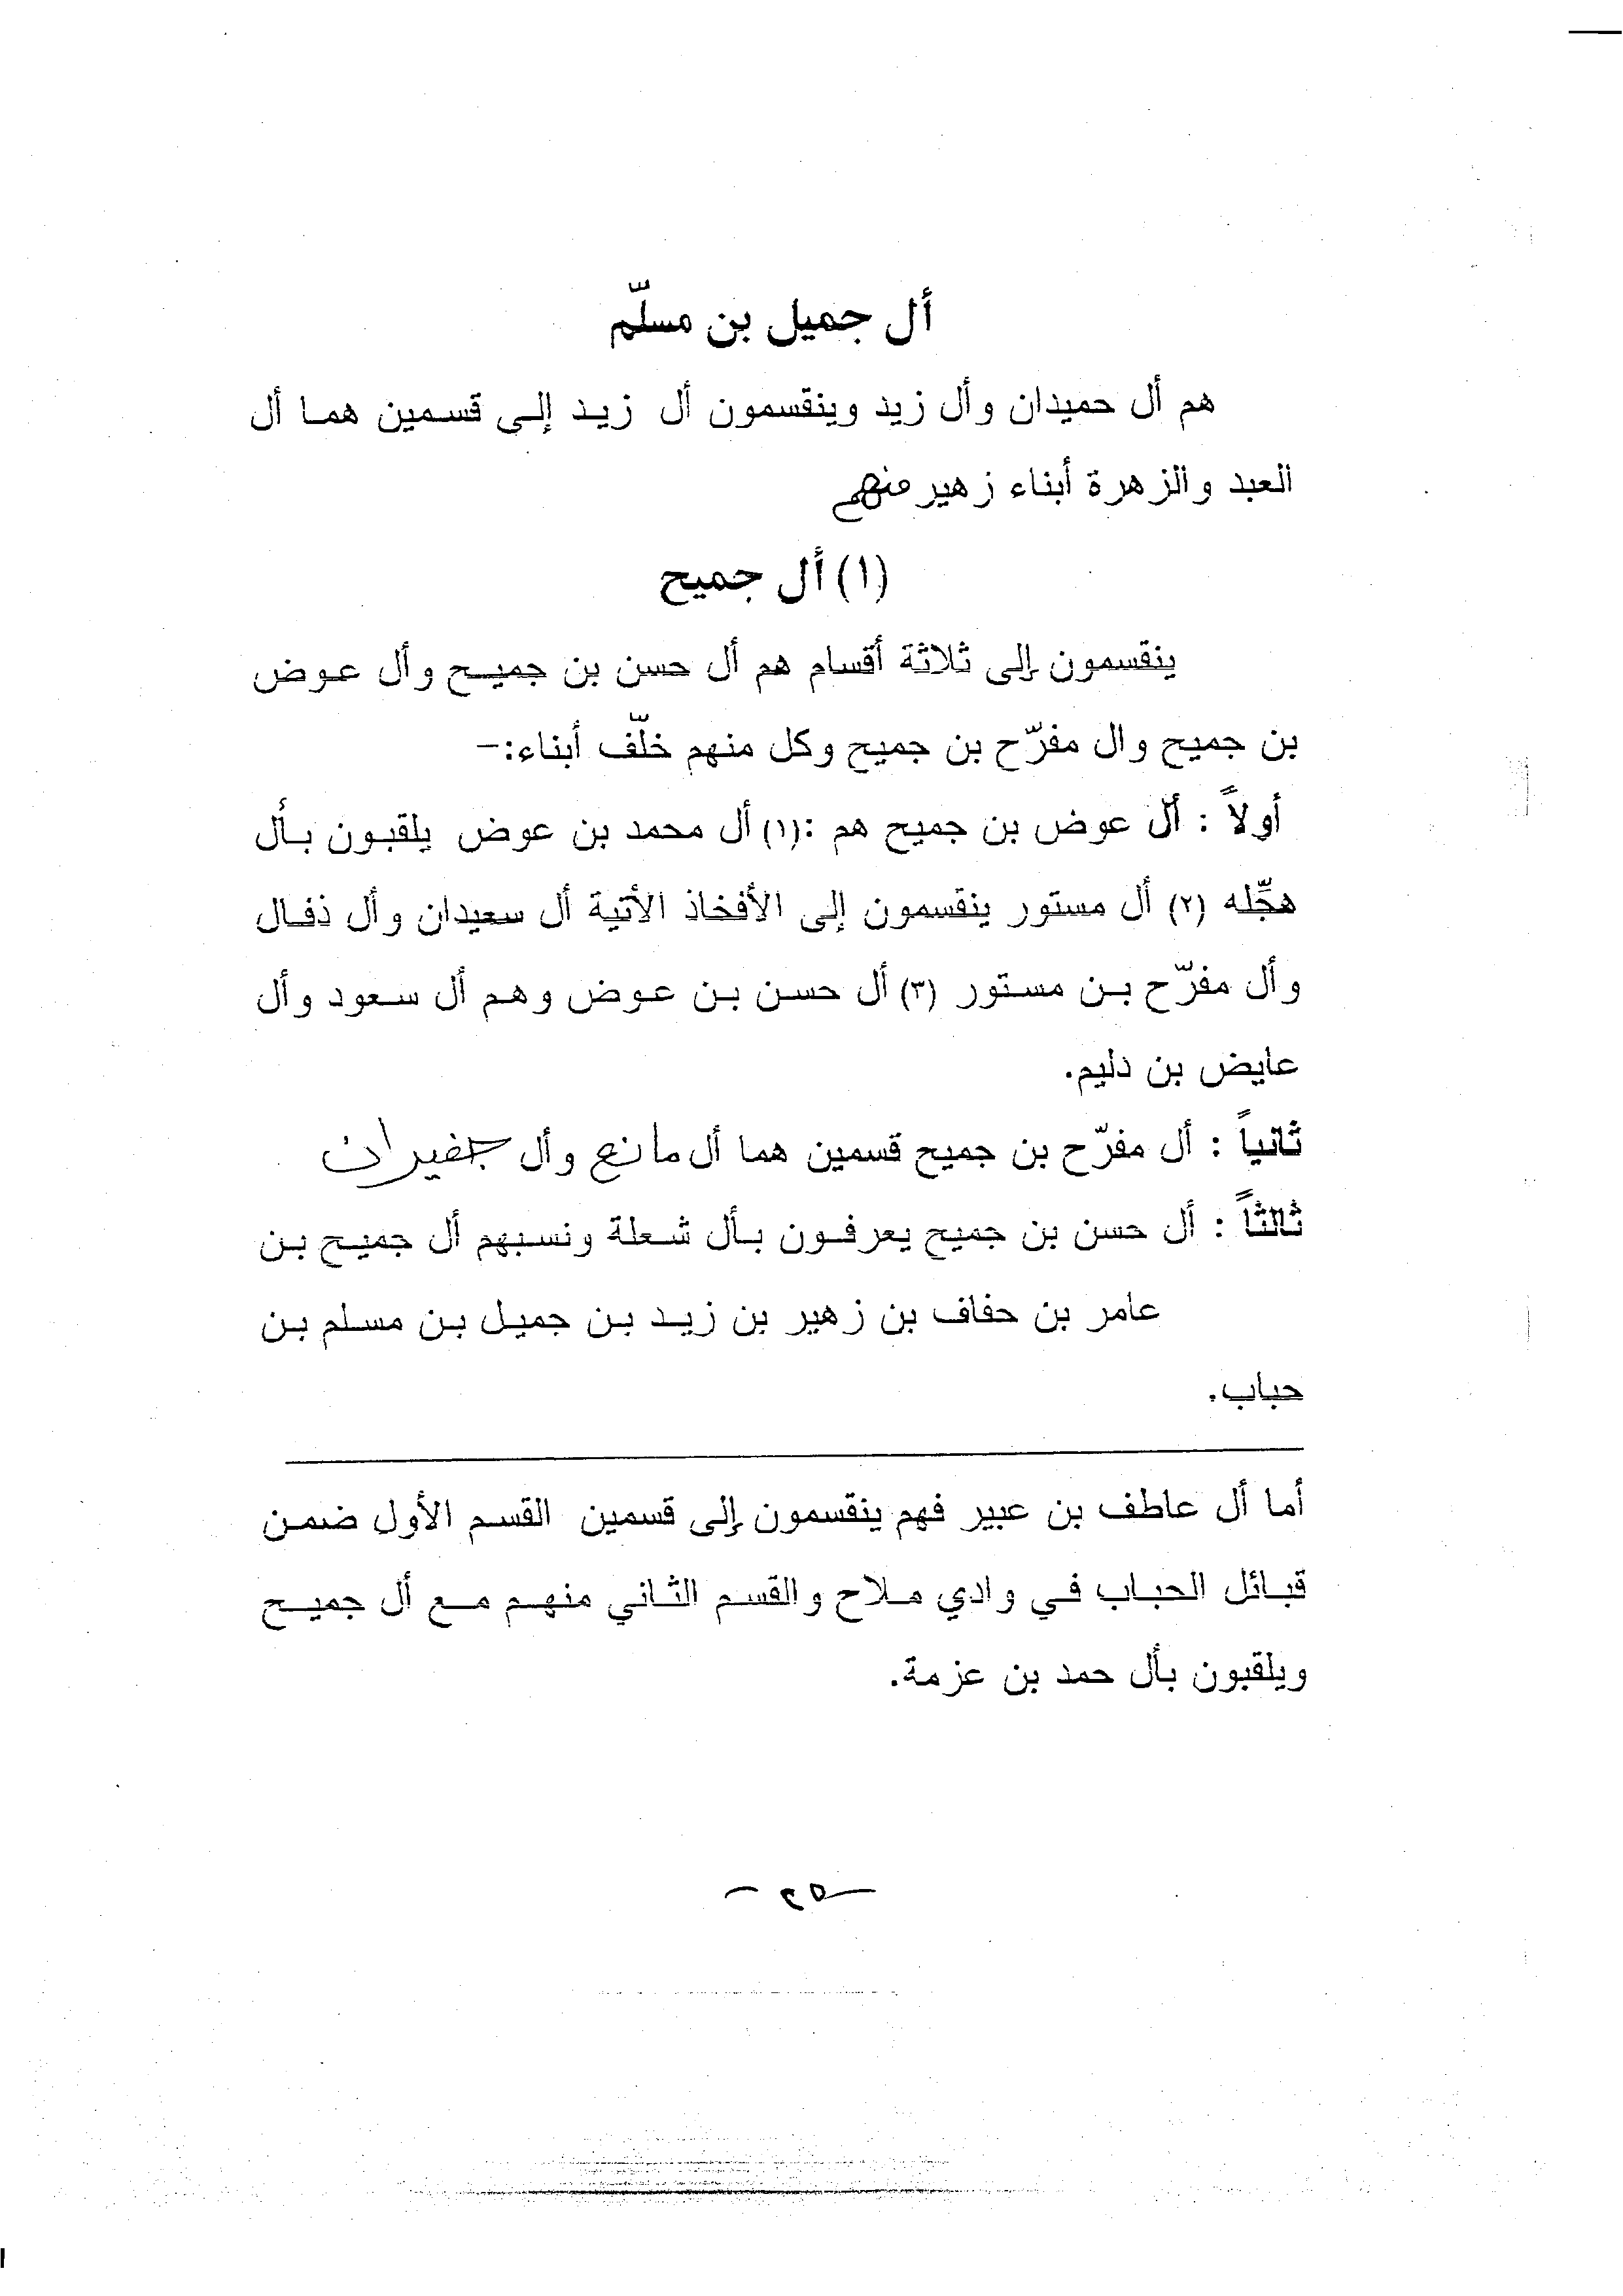 أل جميل بن مسلّم
هم أل حميدان وأل زيد وينقسمون أل زيد إلى قسمين هما أل
العبد والزهرة أبناء زهير منهم
(١) أل جميح
ينقسمون إلى ثلاثة أقسام هم أل حسن بن جميح وأل عوض
بن جميح وال مفرّح بن جميح وكل منهم خلّف أبناء:-
أولاً : أل عوض بن جميح هم :(١) أل محمد بن عوض يلقبون بأل
هجّله (٢) أل مستور ينقسمون إلى الأفخاذ الأتية أل سعيدان وأل ذفال
وأل مفرّح بن مستور (٣) أل حسن بن عوض وهم أل سعود وأل
عايض بن دليم.
ثانياً : أل مفرّح بن جميح قسمين هما أل مانع وأل جفيران
ثالثاً : أل حسن بن جميح يعرفون بأل شعلة ونسبهم أل جميح بن
عامر بن حفاف بن زهير بن زيد بن جميل بن مسلم بن
حباب.
أما أل عاطف بن عبير فهم ينقسمون إلى قسمين القسم الأول ضمن
قبائل الحباب في وادي ملاح والقسم الثاني منهم مع أل جميح
ويلقبون بأل حمد بن عزمة.
- ٢٥ -